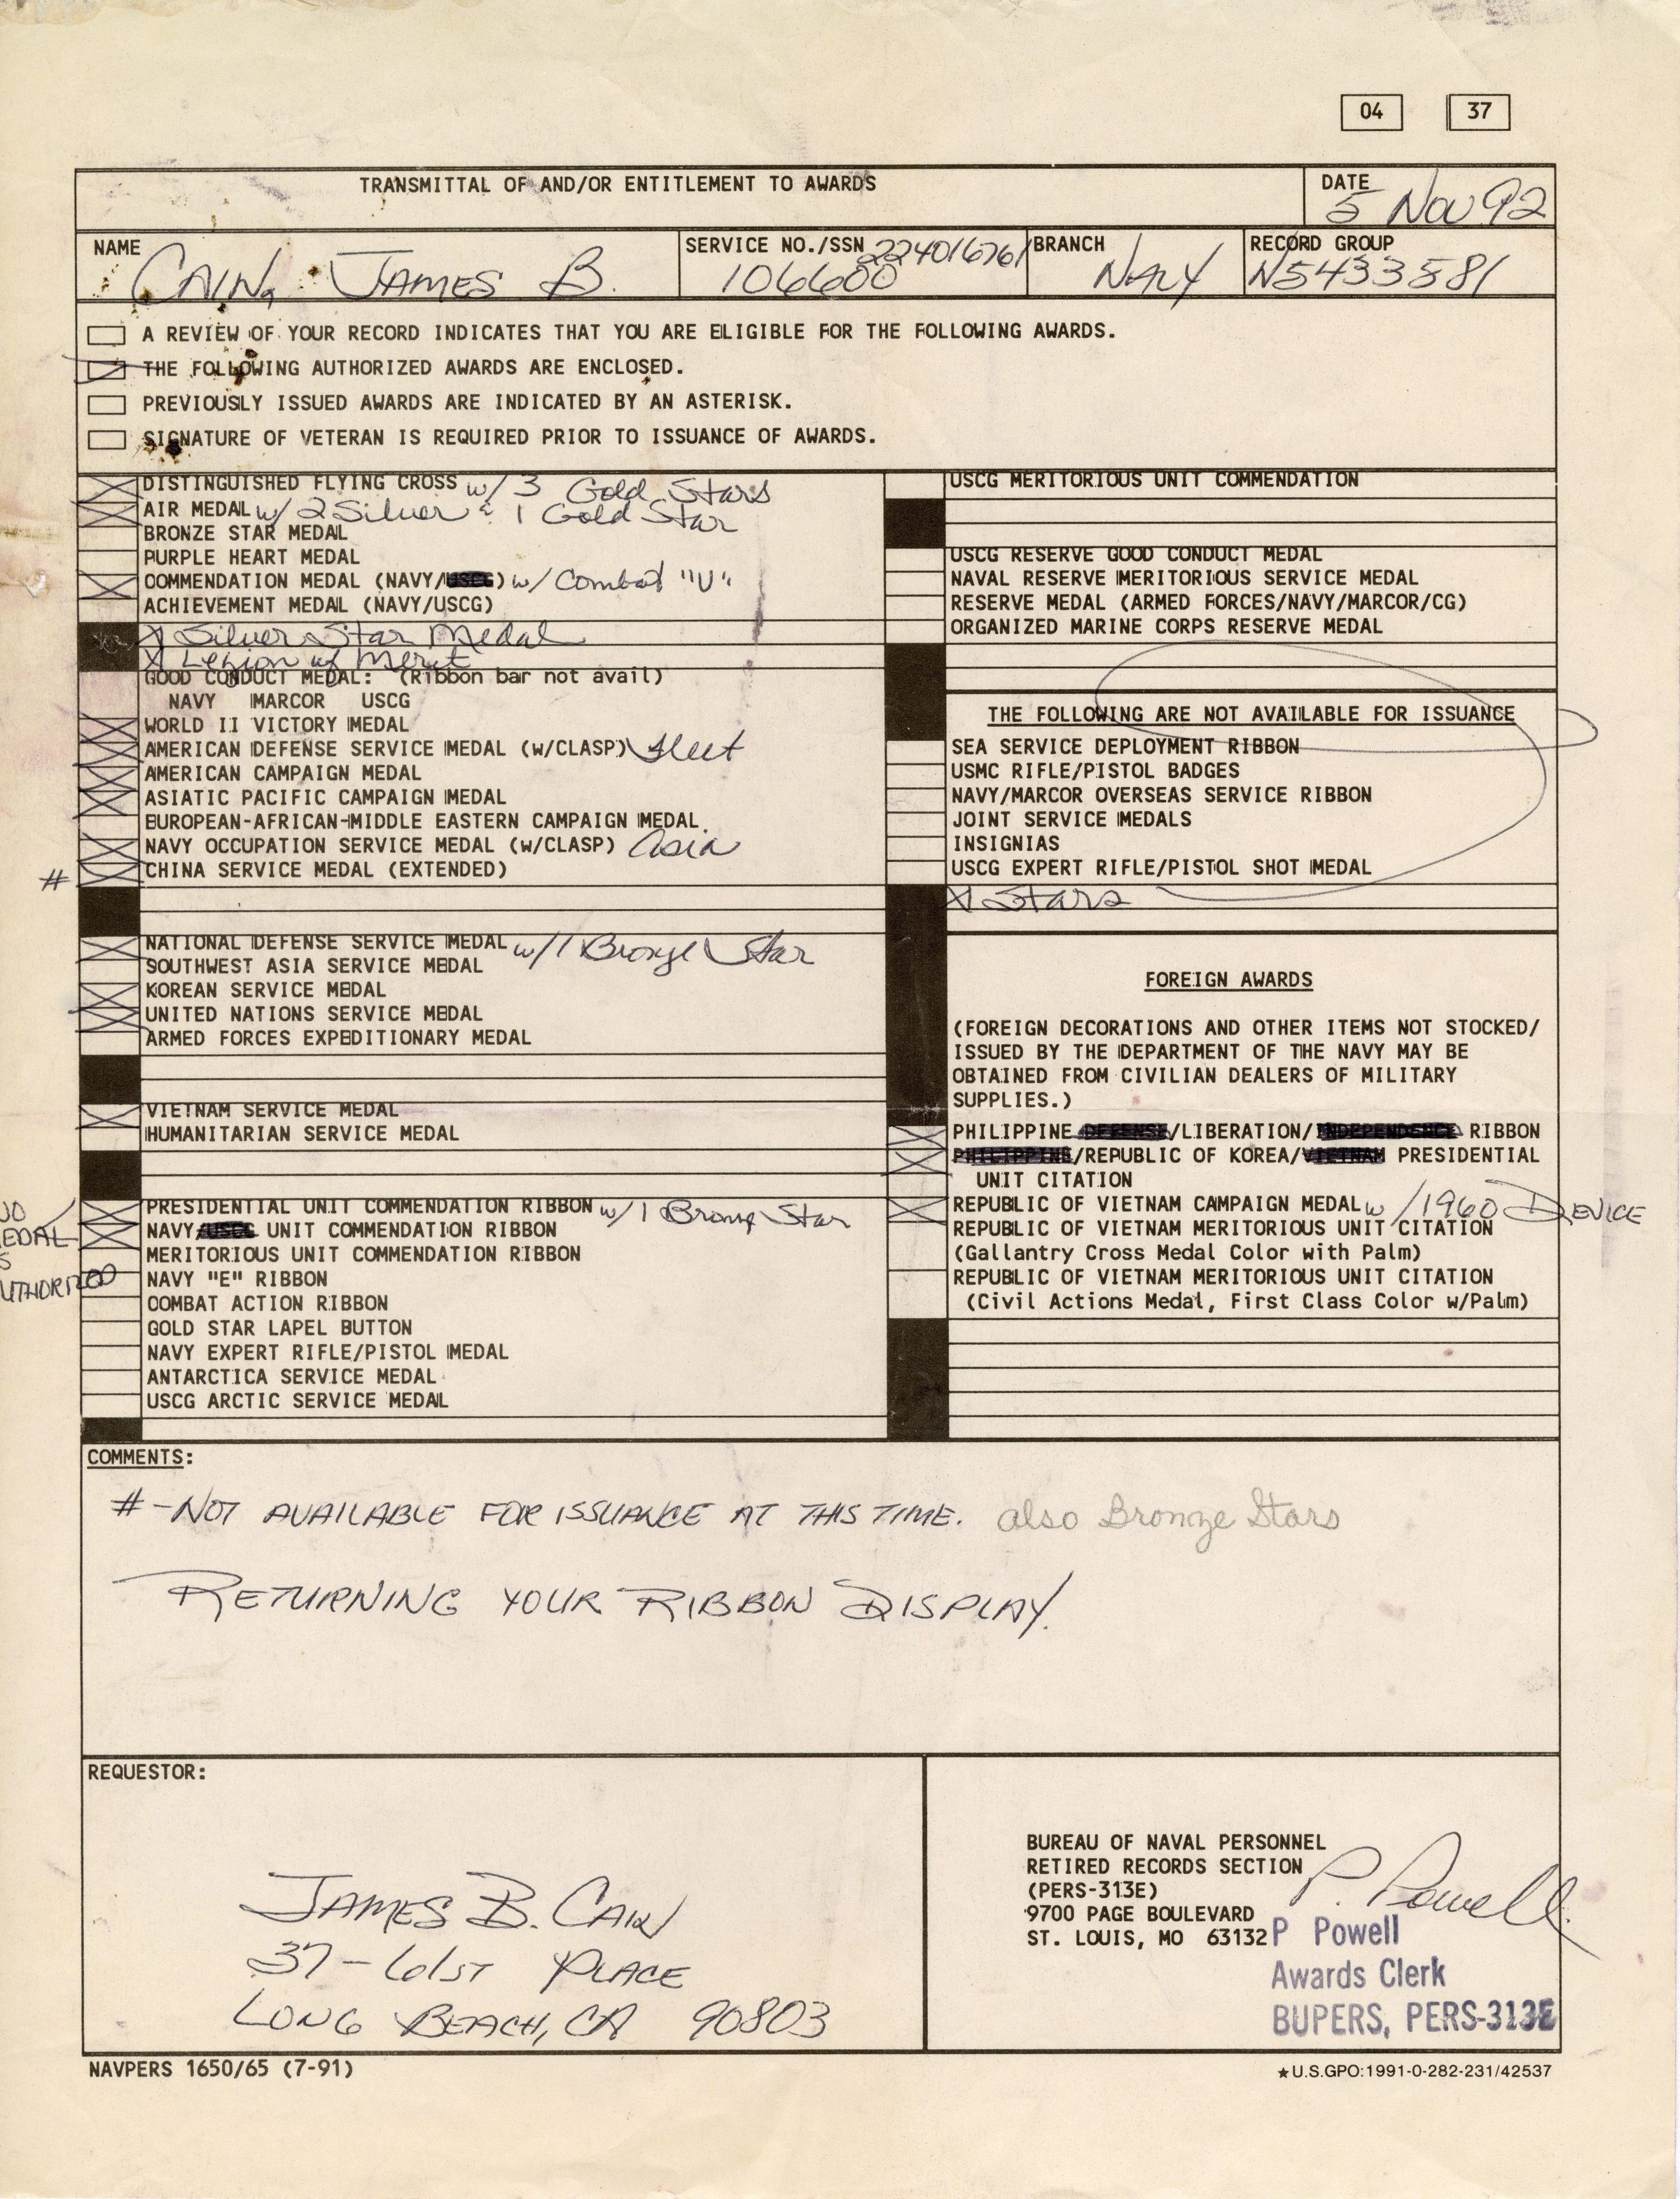 04 37
TRANSMITTAL OF AND/OR ENTITLEMENT TO AWARDS
DATE
5 Nov 92
NAME
CAIN, JAMES B.
SERVICE NO./SSN 224016761
106600
BRANCH
NAVY
RECORD GROUP
N5433581
A REVIEW OF YOUR RECORD INDICATES THAT YOU ARE ELIGIBLE FOR THE FOLLOWING AWARDS.
THE FOLLOWING AUTHORIZED AWARDS ARE ENCLOSED.
PREVIOUSLY ISSUED AWARDS ARE INDICATED BY AN ASTERISK.
SIGNATURE OF VETERAN IS REQUIRED PRIOR TO ISSUANCE OF AWARDS.
DISTINGUISHED FLYING CROSS w/ 3 Gold Stars
AIR MEDAL w/ 2 Silver & 1 Gold Star
BRONZE STAR MEDAL
PURPLE HEART MEDAL
COMMENDATION MEDAL (NAVY/USCG) w/ Combat "V"
ACHIEVEMENT MEDAL (NAVY/USCG)
X Silver Star Medal
X Legion of Merit
GOOD CONDUCT MEDAL: (Ribbon bar not avail)
NAVY MARCOR USCG
WORLD II VICTORY MEDAL
AMERICAN DEFENSE SERVICE MEDAL (W/CLASP) Fleet
AMERICAN CAMPAIGN MEDAL
ASIATIC PACIFIC CAMPAIGN MEDAL
EUROPEAN-AFRICAN-MIDDLE EASTERN CAMPAIGN MEDAL
NAVY OCCUPATION SERVICE MEDAL (W/CLASP) Asia
# CHINA SERVICE MEDAL (EXTENDED)
NATIONAL DEFENSE SERVICE MEDAL w/1 Bronze Star
SOUTHWEST ASIA SERVICE MEDAL
KOREAN SERVICE MEDAL
UNITED NATIONS SERVICE MEDAL
ARMED FORCES EXPEDITIONARY MEDAL
VIETNAM SERVICE MEDAL
HUMANITARIAN SERVICE MEDAL
PRESIDENTIAL UNIT COMMENDATION RIBBON w/ 1 Bronze Star
NAVY/USCG UNIT COMMENDATION RIBBON
MERITORIOUS UNIT COMMENDATION RIBBON
NAVY "E" RIBBON
COMBAT ACTION RIBBON
GOLD STAR LAPEL BUTTON
NAVY EXPERT RIFLE/PISTOL MEDAL
ANTARCTICA SERVICE MEDAL
USCG ARCTIC SERVICE MEDAL
USCG MERITORIOUS UNIT COMMENDATION
USCG RESERVE GOOD CONDUCT MEDAL
NAVAL RESERVE MERITORIOUS SERVICE MEDAL
RESERVE MEDAL (ARMED FORCES/NAVY/MARCOR/CG)
ORGANIZED MARINE CORPS RESERVE MEDAL
THE FOLLOWING ARE NOT AVAILABLE FOR ISSUANCE
SEA SERVICE DEPLOYMENT RIBBON
USMC RIFLE/PISTOL BADGES
NAVY/MARCOR OVERSEAS SERVICE RIBBON
JOINT SERVICE MEDALS
INSIGNIAS
USCG EXPERT RIFLE/PISTOL SHOT MEDAL
X Stars
FOREIGN AWARDS
(FOREIGN DECORATIONS AND OTHER ITEMS NOT STOCKED/
ISSUED BY THE DEPARTMENT OF THE NAVY MAY BE
OBTAINED FROM CIVILIAN DEALERS OF MILITARY
SUPPLIES.)
PHILIPPINE DEFENSE/LIBERATION/INDEPENDENCE RIBBON
PHILIPPINE/REPUBLIC OF KOREA/VIETNAM PRESIDENTIAL
UNIT CITATION
REPUBLIC OF VIETNAM CAMPAIGN MEDAL w/1960 DEVICE
REPUBLIC OF VIETNAM MERITORIOUS UNIT CITATION
(Gallantry Cross Medal Color with Palm)
REPUBLIC OF VIETNAM MERITORIOUS UNIT CITATION
(Civil Actions Medal, First Class Color w/Palm)
COMMENTS:
# - NOT AVAILABLE FOR ISSUANCE AT THIS TIME. also Bronze Stars
RETURNING YOUR RIBBON DISPLAY.
REQUESTOR:
JAMES B. CAIN
37-61ST PLACE
LONG BEACH, CA 90803
BUREAU OF NAVAL PERSONNEL
RETIRED RECORDS SECTION
(PERS-313E)
9700 PAGE BOULEVARD
ST. LOUIS, MO 63132
P. Powell
P Powell
Awards Clerk
BUPERS, PERS-313E
NAVPERS 1650/65 (7-91)
★U.S.GPO:1991-0-282-231/42537